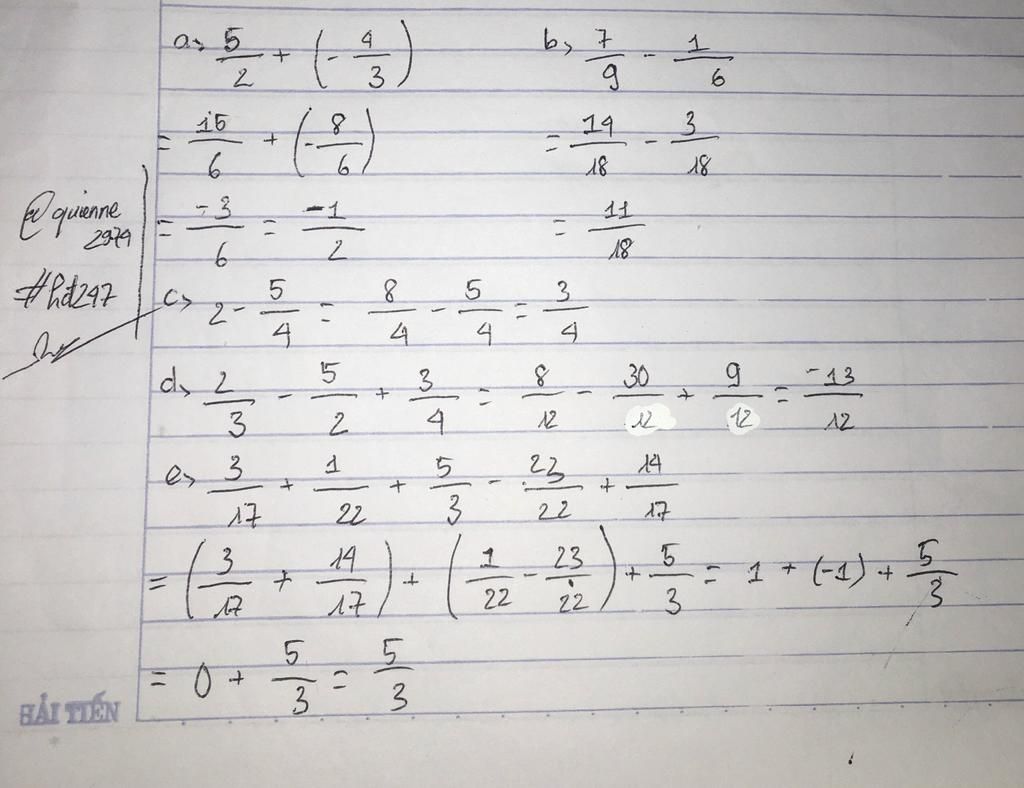 a, 5/2 + (-4/3)
= 15/6 + (-8/6)
= -3/6 = -1/2
b, 7/9 - 1/6
= 14/18 - 3/18
= 11/18
@quienne
2974
#hđ247
c, 2 - 5/4 = 8/4 - 5/4 = 3/4
d, 2/3 - 5/2 + 3/4 = 8/12 - 30/12 + 9/12 = -13/12
e, 3/17 + 1/22 + 5/3 - 23/22 + 14/17
= (3/17 + 14/17) + (1/22 - 23/22) + 5/3 = 1 + (-1) + 5/3
= 0 + 5/3 = 5/3
HẢI TIẾN